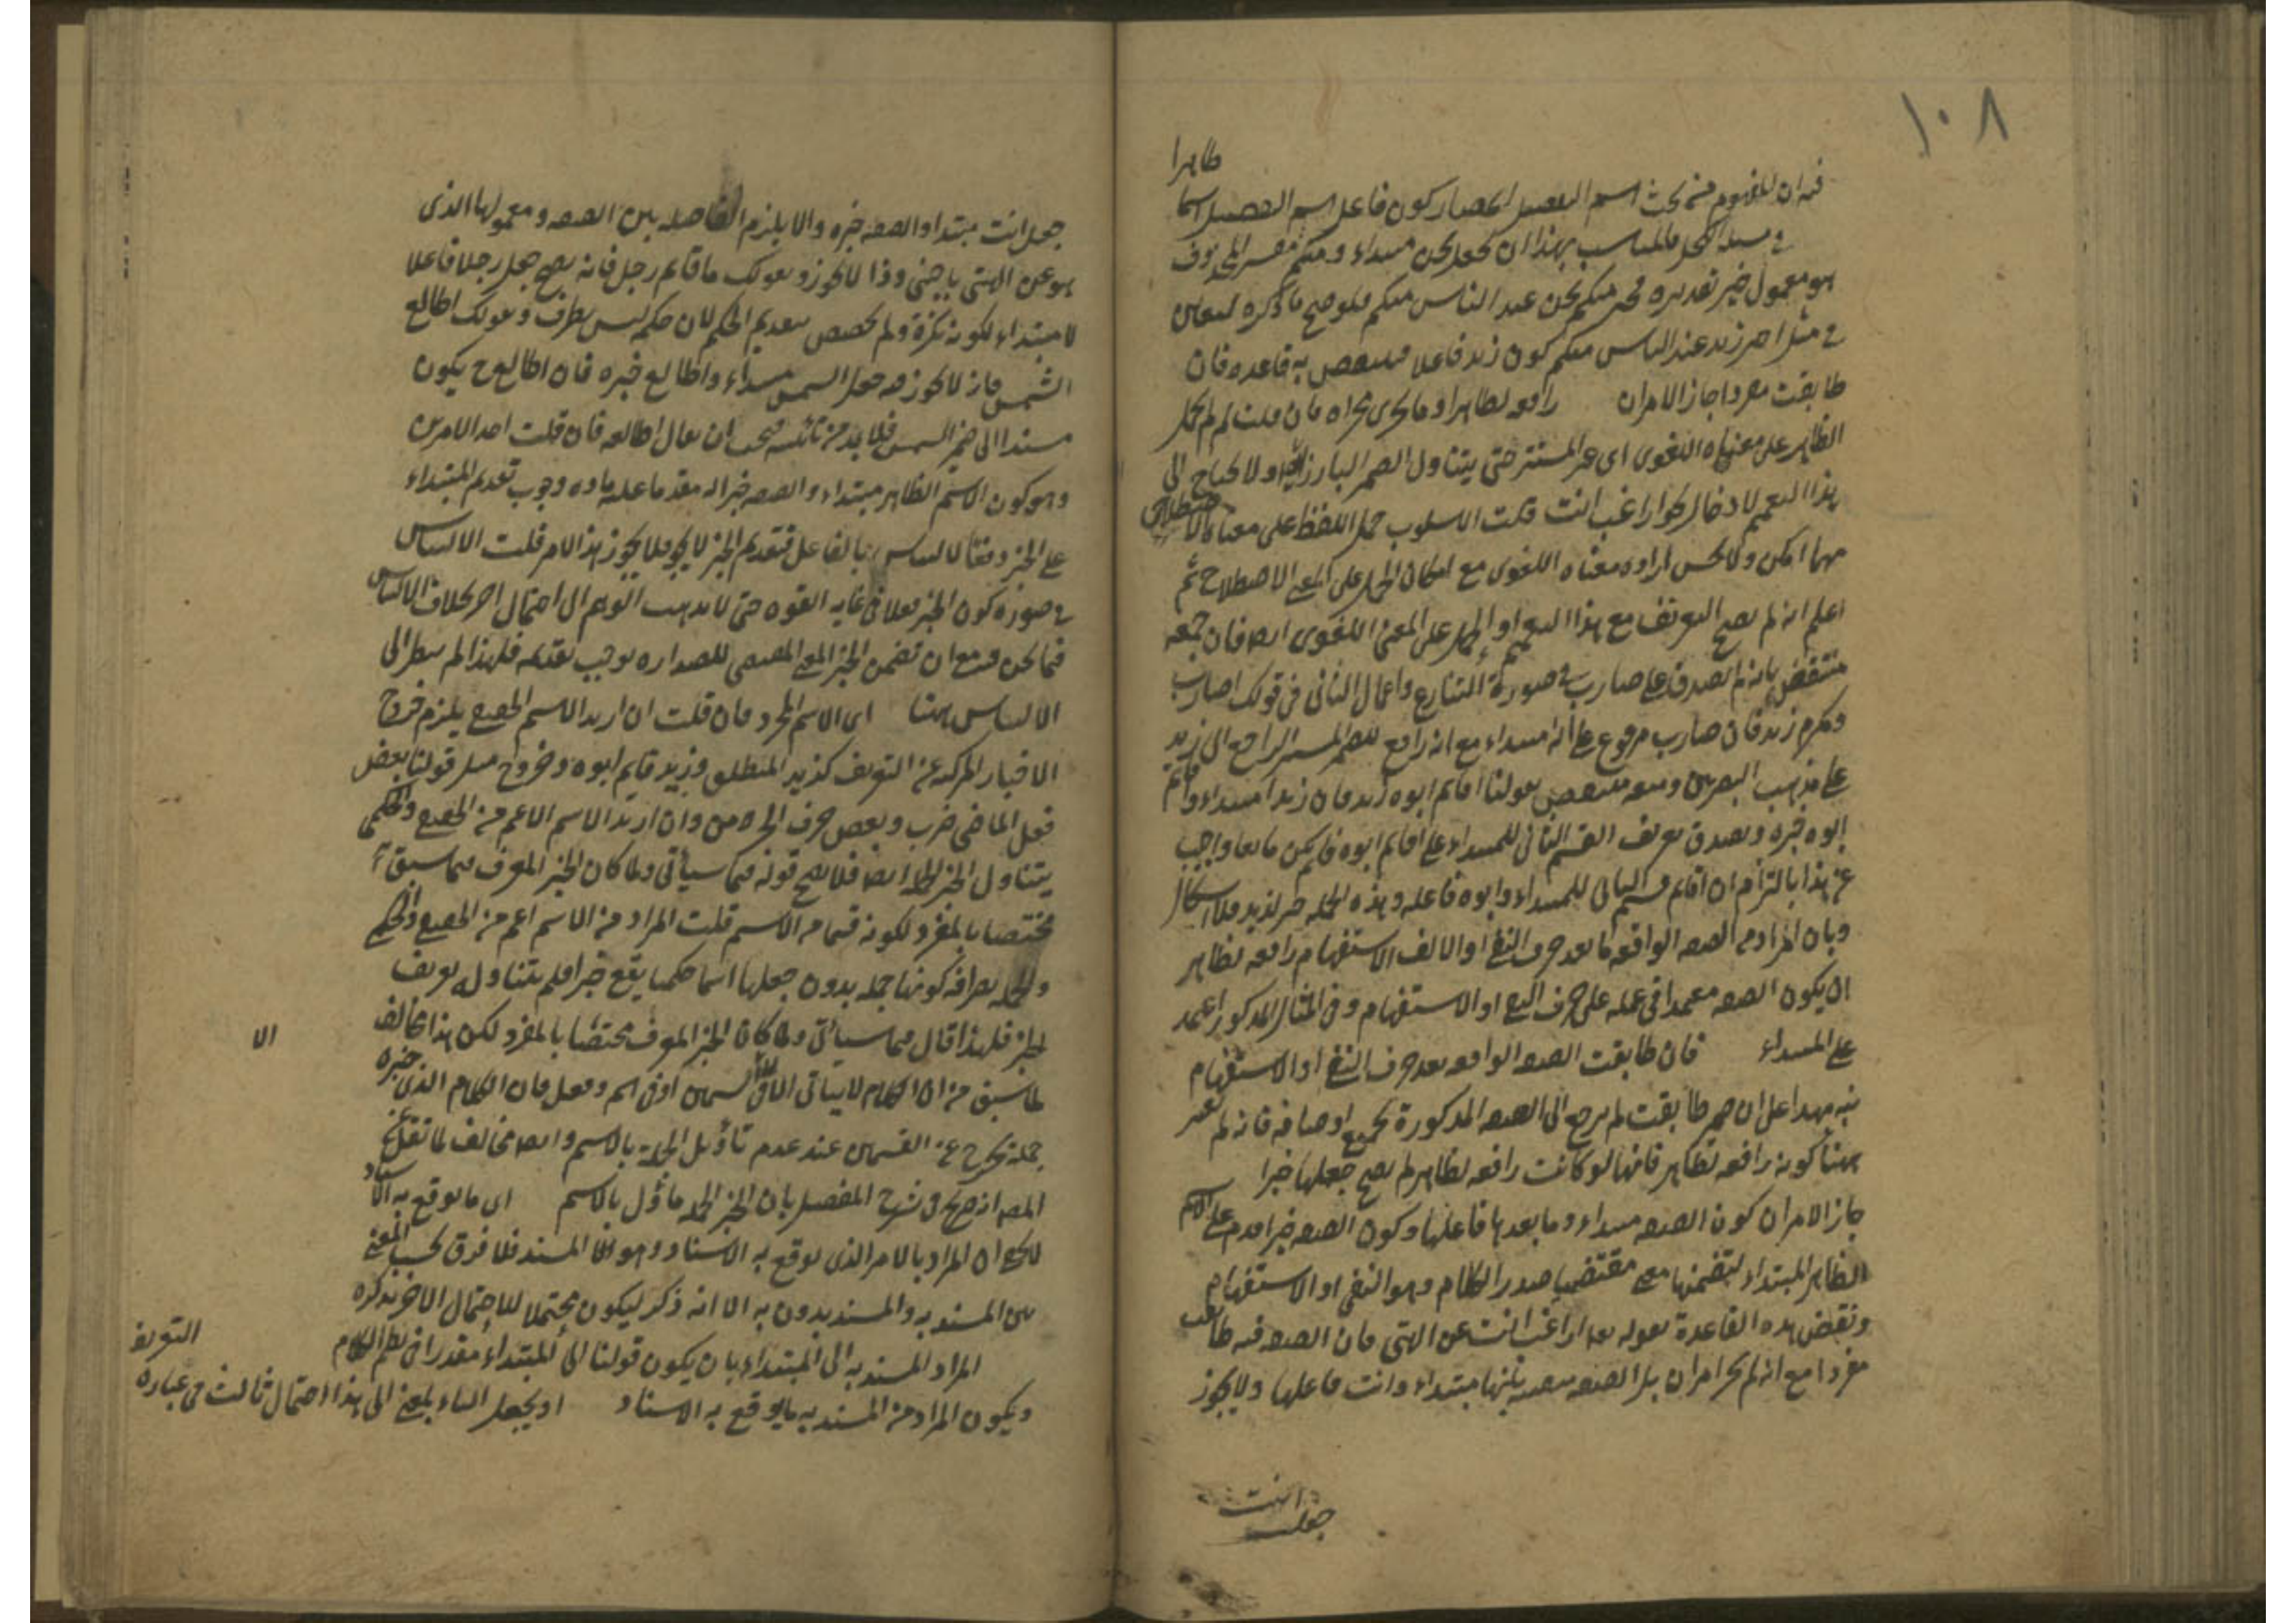 ١٠٨
ظاهرا
فيه ان المفهوم من بحث اسم التفضيل انحصار كون فاعل اسم التفضيل اسما
في مسئلة الكحل فالمناسب بهذا ان يجعل نحن مبتداء ومنكم مفسر المحذوف
هو معمول خير تقديره فخير منكم نحن عند الناس منكم
في مثل اخير زيد عند الناس منكم كون زيد فاعلا فينتقض به قاعدة فان
طابقت مفردا جاز الامران رافعة لظاهر او ما يجرى مجراه فان قلت لم لم يحمل
الظاهر على معناه اللغوى اى غير المستتر حتى يتناول الضمير البارز ايضا ولا يحتاج الى
هذا التعميم لادخال نحو اراغب انت قلت الاسلوب حمل اللفظ على معناه الاصطلاحى
مهما امكن ولا يحسن ارادة معناه اللغوى مع امكان الحمل على المعنى الاصطلاحى ثم
اعلم انه لم يصح التعريف مع هذا التعميم او الحمل على المعنى اللغوى ايضا فان جمعه
منتقض بانه لم يصدق على ضارب في صورة التنازع واعمال الثانى في قولك اضارب
ومكرم زيد فان ضارب مرفوع على انه مبتداء مع انه رافع للضمير المستتر الراجع الى زيد
على مذهب البصريين ومنعه منتقض بقولنا اقائم ابوه زيد فان زيدا مبتداء وقائم
ابوه خبره ويصدق تعريف القسم الثانى للمبتداء على اقائم ابوه
عن هذا بالتزام ان اقائم قسم الثانى للمبتداء وابوه فاعله وهذه الجملة خبر لزيد فلا اشكال
وبان المراد من الصفة الواقعة بعد حرف النفى او الالف الاستفهام رافعة لظاهر
ان يكون الصفة معتمدا في عمله على حرف النفى او الاستفهام وفى المثال المذكور اعتمد
على المبتداء فان طابقت الصفة الواقعة بعد حرف النفى او الاستفهام
نبه بهذا على ان ضمير طابقت لم يرجع الى الصفة المذكورة بجميع اوصافه فانه لم يعتبر
ههنا كونه رافعة لظاهر فانها لو كانت رافعة لظاهر لم يصح جعلها خبرا
جاز الامران كون الصفة مبتداء وما بعدها فاعلها وكون الصفة خبرا قدم على الاسم
الظاهر المبتداء لتضمنها معنى مقتضيا صدر الكلام وهو النفى او الاستفهام
ونقض هذه القاعدة بقوله تعالى اراغب انت عن الهتى فان الصفة فيه طابقت
مفردا مع انه لم يجز امران بل الصفة متعينة بكونها مبتداء وانت فاعلها ولا يجوز
جعل انت
جعل انت مبتداء والصفة خبره والا يلزم الفاصلة بين الصفة ومعمولها الذى
هو عن الهتى باجنبى وذا لا يجوز وبقولك ما قائم رجل فانه يصح جعل رجل فاعلا
لا مبتداء لكونه نكرة ولم يخصص بتقديم الحكم لان حكم ليس بظرف وبقولك اطالع
الشمس فانه لا يجوز فيه جعل الشمس مبتداء واطالع خبره فان اطالع ح يكون
مسندا الى ضمير الشمس فلا بد من تانيثه فيجب ان يقال اطالعة فان قلت احد الامرين
وهو كون الاسم الظاهر مبتداء والصفة خبرا له مقدما عليه مادة وجوب تقديم المبتداء
على الخبر دفعا لالتباس بالفاعل فتقديم الخبر لا يجوز فلا يجوز هذا الامر قلت الالتباس
في صورة كون الخبر فعلا في غاية القوة حتى لا يذهب الوهم الى احتمال اخر بخلاف الالتباس
فيما نحن فيه مع ان تضمن الخبر المعنى المقتضى للصدارة يوجب تقديمه فلهذا لم ينظر الى
الالتباس ههنا اى الاسم المجرد فان قلت ان اريد الاسم الحقيقى يلزم خروج
الاخبار المركبة عن التعريف كزيد المنطلق وزيد قايم ابوه وخروج مثل قولنا بعض
فعل الماضى ضرب وبعض حرف الجر من وان اريد الاسم الاعم من الحقيقى والحكمى
يتناول الخبر الجملة ايضا فلا يصح قوله فيما سيأتى ولما كان الخبر المعرف فيما سبق
مختصا بالمفرد لكونه قسما من الاسم قلت المراد من الاسم اعم من الحقيقى والحكمى
والجملة بصرافة كونها جملة بدون جعلها اسما حكميا يقع خبرا فلم يتناوله تعريف
الخبر فلهذا قال فيما سيأتى ولما كان الخبر المعرف مختصا بالمفرد لكن هذا يخالف
الا
لما سبق من ان الكلام لا يتأتى الا في اسمين او في اسم وفعل فان الكلام الذى خبره
جملة يخرج عن القسمين عند عدم تاويل الجملة بالاسم وايضا مخالف لما نقل عن
المصنف انه صرح في شرح المفصل بان الخبر الجملة ماؤل بالاسم اى ما يوقع به الاسناد
لا يخفى ان المراد بالامر الذى يوقع به الاسناد هو المسند فلا فرق بحسب المعنى
بين المسند به والمسند بدون به الا انه ذكر ليكون محتملا للاحتمال الاخر بذكره
المراد المسند به الى المبتداء بان يكون قولنا الى المبتداء مقدرا في نظم الكلام
التعريف
ويكون المراد من المسند به ما يوقع به الاسناد او يجعل الباء بمعنى الى هذا احتمال ثالث في عبارة